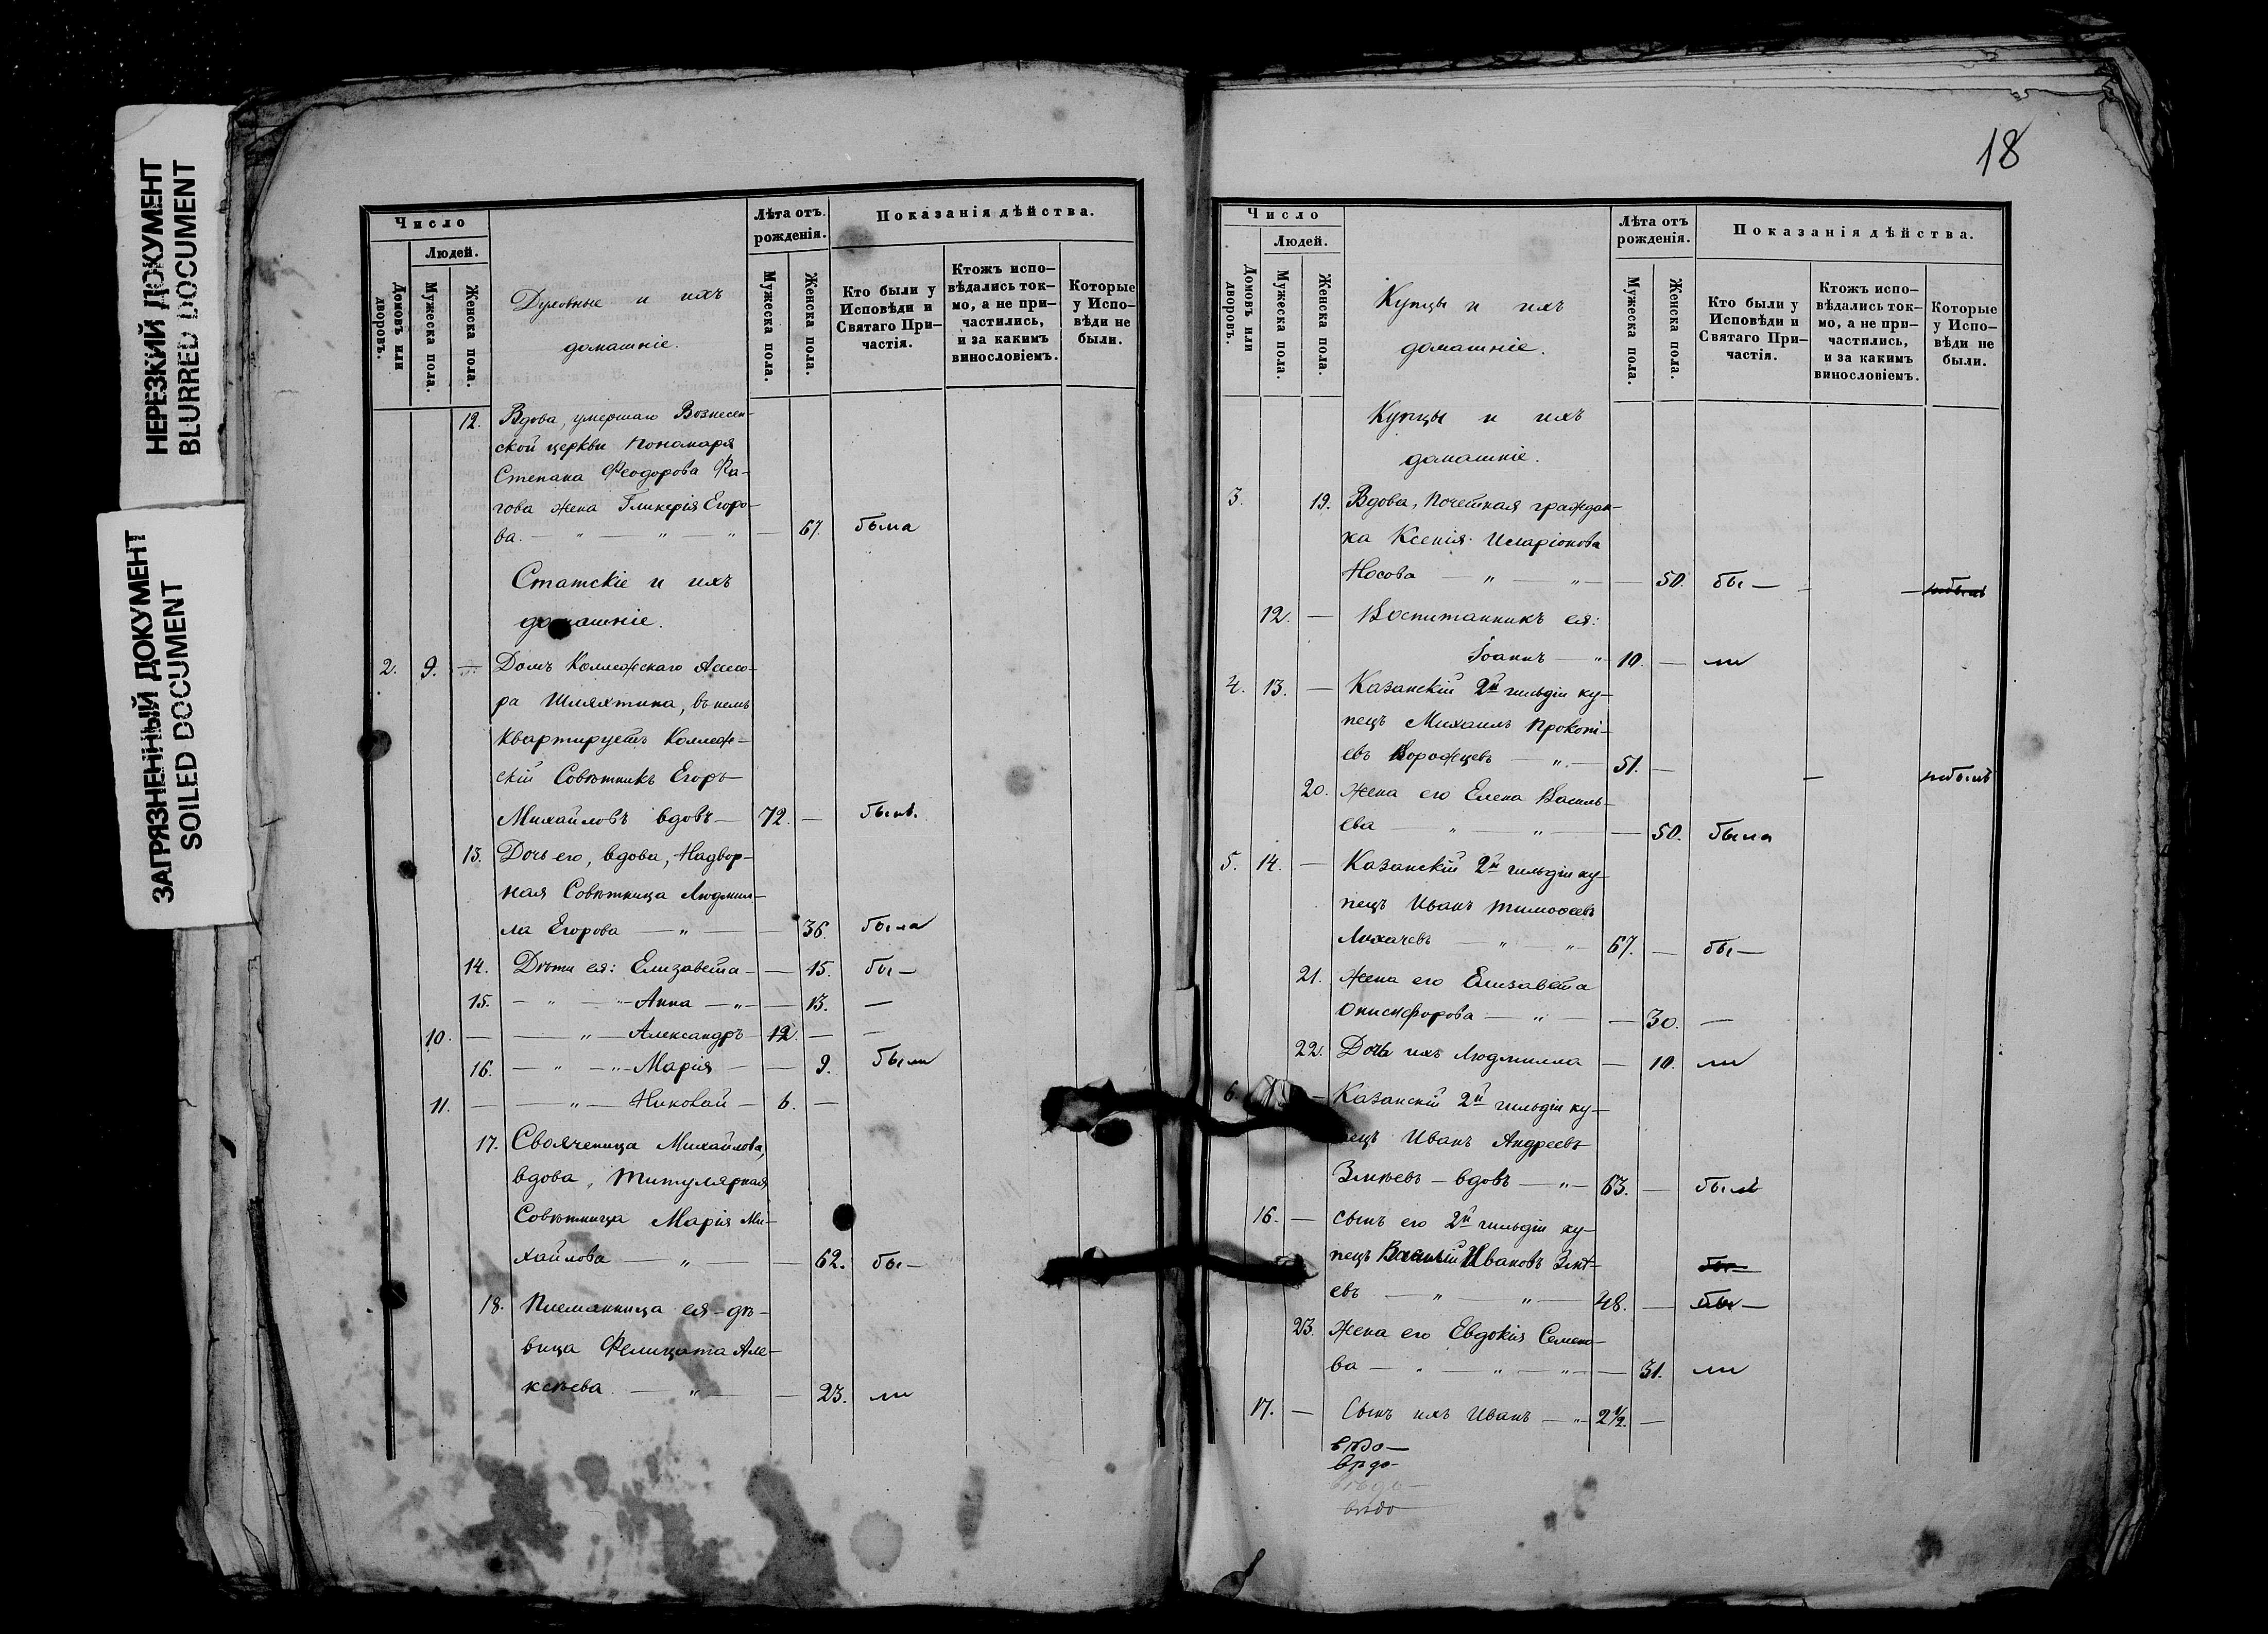 НЕРЕЗКИЙ ДОКУМЕНТ
BLURRED DOCUMENT
ЗАГРЯЗНЕННЫЙ ДОКУМЕНТ
SOILED DOCUMENT
Число
Людей.
Домовъ или дворовъ.
Мужеска пола.
Женска пола.
Духовные и ихъ
домашніе.
Лѣта отъ
рожденія.
Мужеска пола.
Женска пола.
Показанія дѣйства.
Кто были у
Исповѣди и
Святаго При-
частія.
Ктожъ испо-
вѣдались ток-
мо, а не при-
частились,
и за какимъ
винословіемъ.
Которые
у Испо-
вѣди не
были.
12. Вдова, умершаго Вознесен-
ской церкви Пономаря
Степана Феодорова Ра-
гова жена Гликерія Егоро-
ва. — " — " — " — 67. была
Статскіе и ихъ
домашніе.
2. 9. — Домъ Коллежскаго Ассесо-
ра Шляхтина, въ немъ
квартируетъ Коллеж-
скій Совѣтникъ Егоръ
Михайловъ вдовъ — 72. — былъ.
13. Дочь его, вдова, Надвор-
ная Совѣтница Людмил-
ла Егорова — " — — 36. была
14. Дѣти ея: Елизавета — — 15. бы —
15. — " — " — Анна — " — — 13. —
10. — — " — Александръ — 12. — —
16. — " — " — Марія — — 9. были
11. — — " — Николай — 6. —
17. Свояченица Михайлова,
вдова, Титулярная
Совѣтница Марія Ми-
хайлова — " — — 62. бы —
18. Племянница ея — дѣ-
вица Фелицата Але-
ксѣева. — " — — 23. ли
18
Число
Людей.
Домовъ или дворовъ.
Мужеска пола.
Женска пола.
Купцы и ихъ
домашніе.
Лѣта отъ
рожденія.
Мужеска пола.
Женска пола.
Показанія дѣйства.
Кто были у
Исповѣди и
Святаго При-
частія.
Ктожъ испо-
вѣдались ток-
мо, а не при-
частились,
и за какимъ
винословіемъ.
Которые
у Испо-
вѣди не
были.
Купцы и ихъ
домашніе.
3. 19. Вдова, Почетная граждан-
ка Ксенія Иларіонова
Носова — " — " — — 50. бы — —
12. — Воспитанникъ ея:
Іоаннъ — " 10. — ли
4. 13. — Казанскій 2й гильдіи ку-
пецъ Михаилъ Прокопі-
евъ Ворожцевъ — " — 51. — — небылъ
20. Жена его Елена Василь-
ева — " — " — — 50. была
5. 14. — Казанскій 2й гильдіи ку-
пецъ Иванъ Тимоѳеевъ
Лихачевъ — " — " — 67. — бы —
21. Жена его Елизавета
Онисифорова — " — — 30. —
22. Дочь ихъ Людмилла — 10. ли
6. — Казанскій 2й гильдіи ку-
пецъ Иванъ Андреевъ
Змѣевъ — вдовъ — " — 63. — былъ
16. — Сынъ его 2й гильдіи ку-
пецъ Василій Ивановъ Змѣ-
евъ — " — " — 48. — бы —
23. Жена его Евдокія Семено-
ва — " — " — " — — 31. ли
17. — Сынъ ихъ Иванъ — " — 2 1/2. —